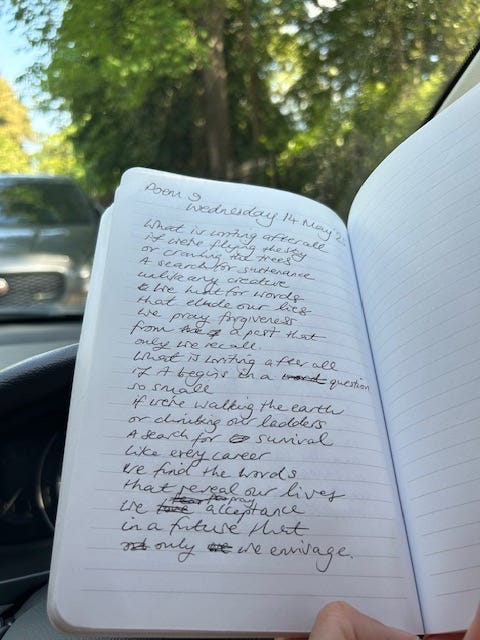 Poem 9
Wednesday 14 May
What is writing after all
if we're flying the sky
or the trees
A search for sustenance
unlike any creature
We hunt for words
that elude our lies
We pray forgiveness
from a past that
only we recall.
What is writing after all
if it begins in a question
so small
if we're walking the earth
or climbing our ladders
A search for survival
like every career
We find the words
that reveal our lives
We acceptance
in a future that
only we envisage.